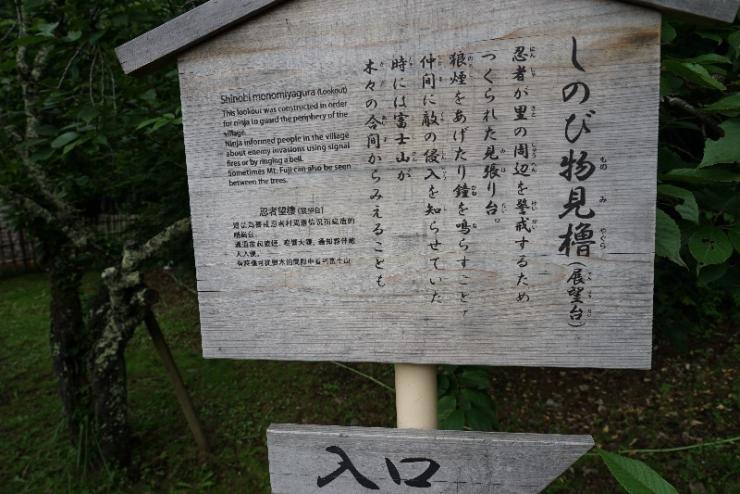 しのび物見櫓(展望台)
忍者が里の周辺を警戒するため
つくられた見張り台。
狼煙をあげたり鐘を鳴らすことで
仲間に敵の侵入を知らせていた
時には富士山が
木々の合間からみえることも
Shinobi monomiyagura (Lookout)
This lookout was constructed in order
for ninja to guard the periphery of the
village.
Ninja informed people in the village
about enemy invasions using signal
fires or by ringing a bell.
Sometimes Mt. Fuji can also be seen
between the trees.
忍者望樓(展望台)
入口